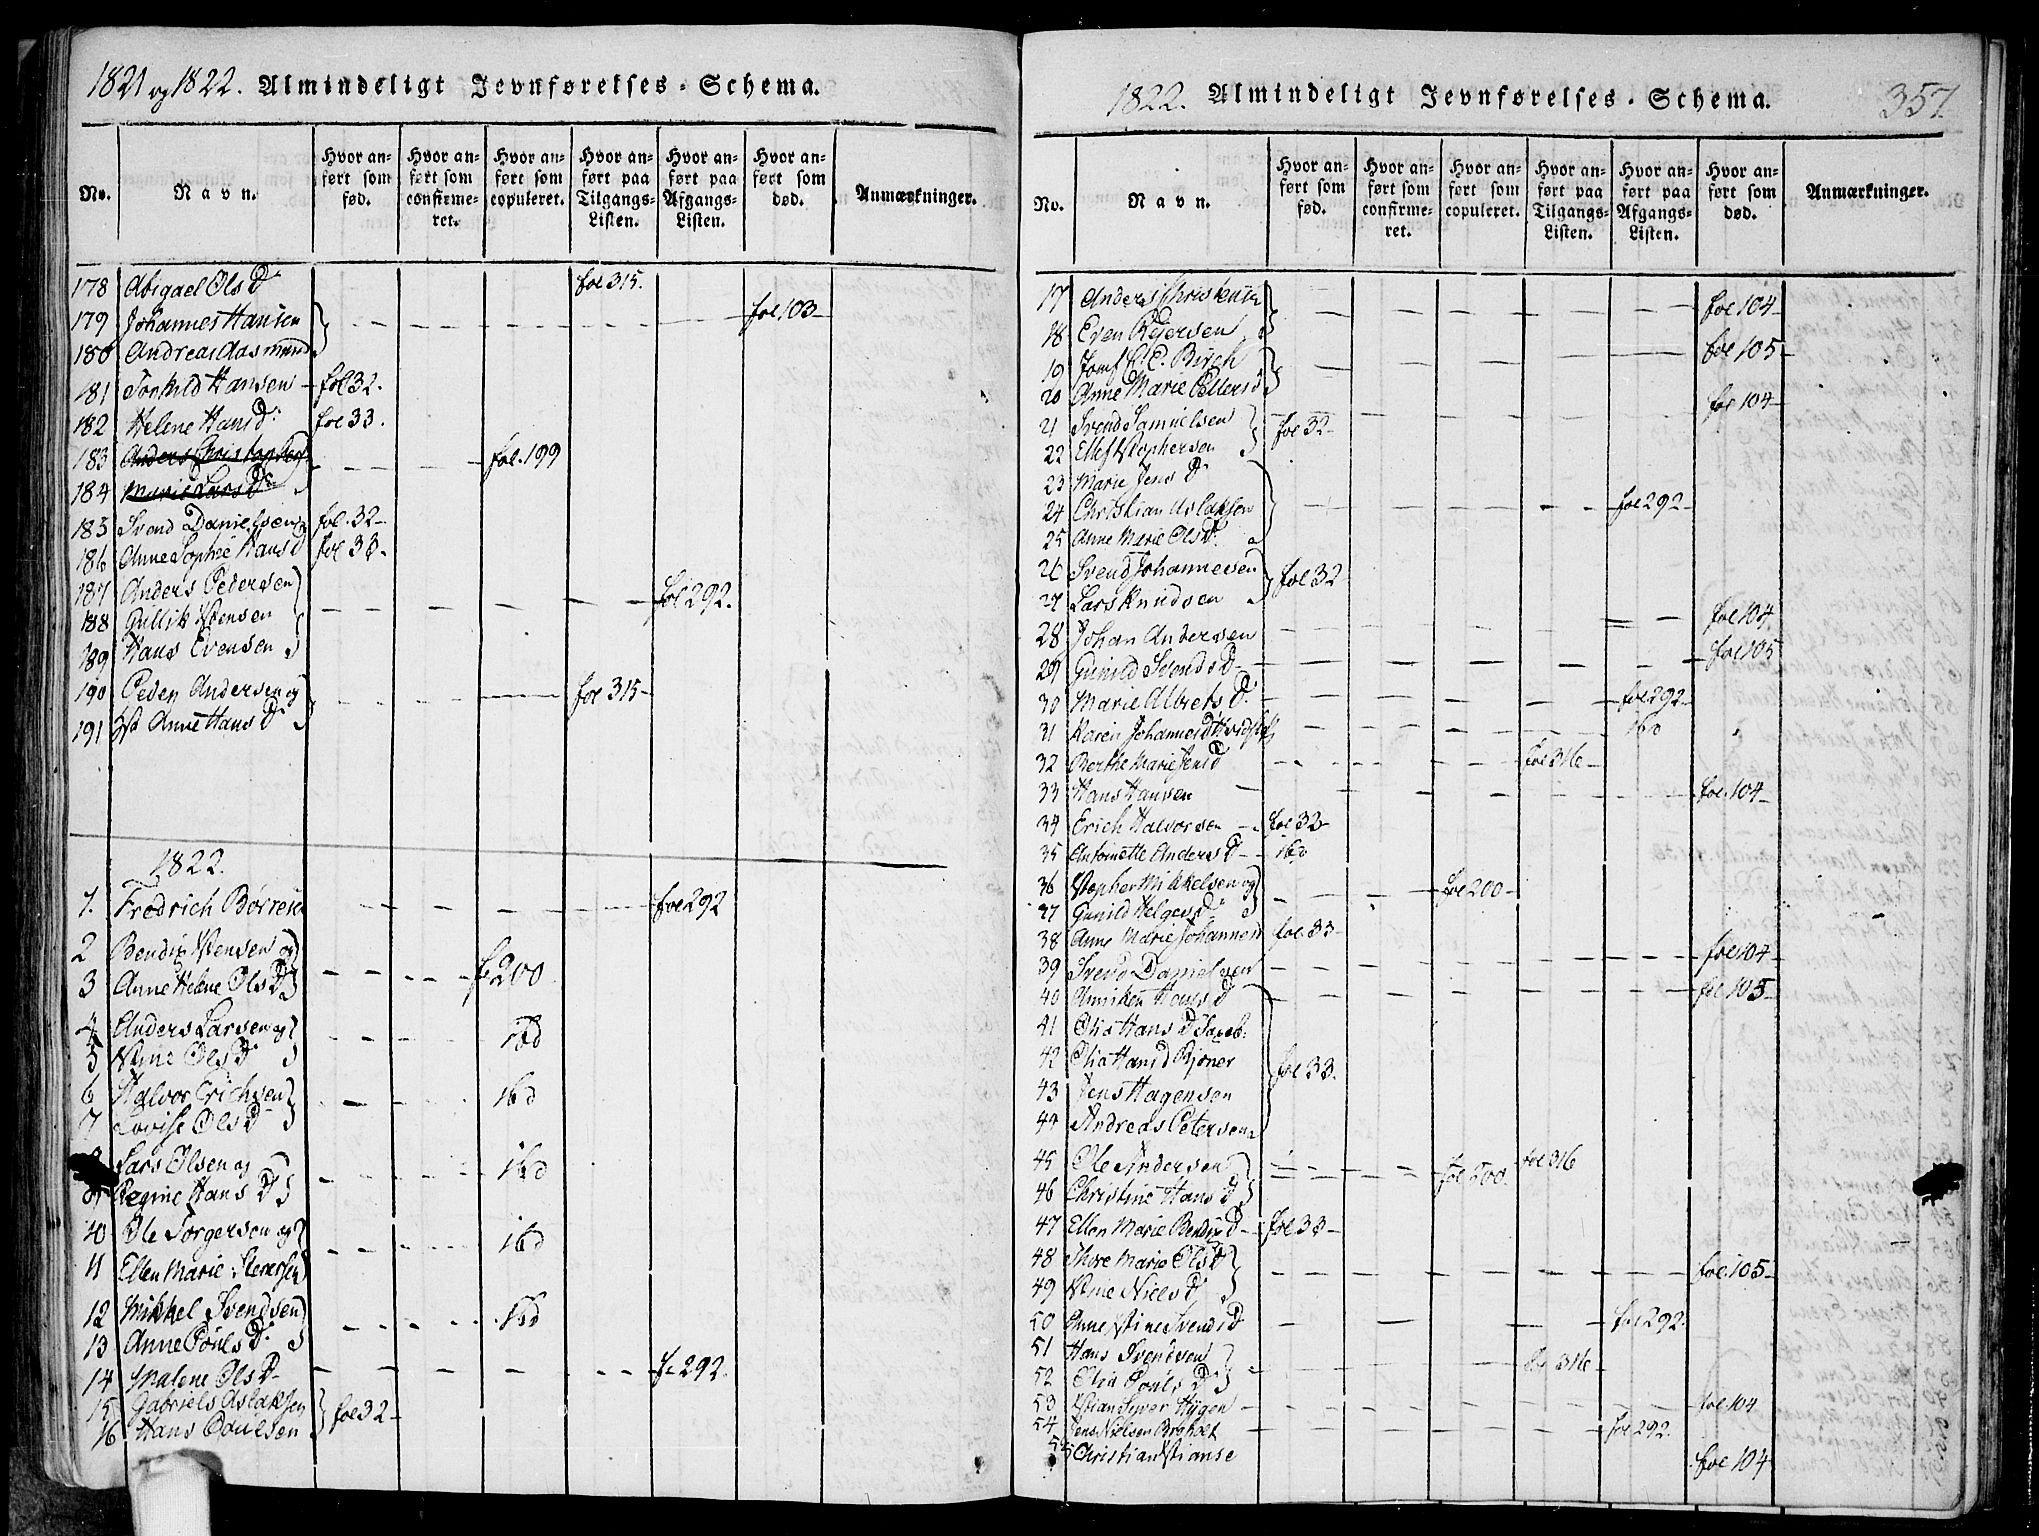 1821 og 1822. Almindeligt Jevnførelses-Schema.
No. Navn. Hvor anført som fød. Hvor anført som confirmeret. Hvor anført som copuleret. Hvor anført paa Tilgangs-Listen. Hvor anført paa Afgangs-Listen. Hvor anført som død. Anmærkninger.
178 Abigael Ols D. fol 315.
179 Johannes Hansen fol. 103
180 Andreas Aasmund
181 Torkild Hansen fol 32.
182 Helene Hans D. fol 33.
183 Anders Christophers fol. 199
184 Marie Lars D.
185 Svend Danielsen fol. 32
186 Anne Sophie Hans D fol 33.
187 Anders Pedersen
188 Gullik Stensen fol 292.
189 Hans Evensen
190 Peder Andersen og fol 315
191 Anne Hans D.
1822.
1. Fredrich Børresen fol 292
2 Bendix Stensen og
3 Anne Helene Ols D f. 200
4 Anders Larsen og
5 Stine Ols D. ibd
6 Halvor Erichsen
7 Lovise Ols D ibd
8 Lars Olsen og
9 Regine Hans D ibd
10 Ole Torgersen og
11 Ellen Marie ibd
12 Mikkel Svendsen
13 Anne Pouls D. ibd
14 Malene Ols D f. 292
15 Gabriel Aslaksen
16 Hans Poulsen fol 32
1822. Almindeligt Jevnførelses-Schema. 357.
No. Navn. Hvor anført som fød. Hvor anført som confirmeret. Hvor anført som copuleret. Hvor anført paa Tilgangs-Listen. Hvor anført paa Afgangs-Listen. Hvor anført som død. Anmærkninger.
17 Anders Christensen fol 104
18 Even Reiersen
19 Jomf C. C. Birch fol 105
20 Anne Marie Petters D
21 Svend Samuelsen fol 104
22 Ellef Stophersen fol 32
23 Marie Jens D.
24 Christian Aslaksen fol 292
25 Anne Marie Ols D.
26 Svend Johannesen fol 32
27 Lars Knudsen
28 Johan Andersen fol 104
29 Gunild Svends D fol 105
30 Marie Albrets D. fol 292
31 Karen Johannes D ibd
32 Berthe Marie Jens D fol 316
33 Hans Hansen fol. 104
34 Erich Halvorsen fol 32
35 Antonette Anders D ibd
36 Stopher Mikkelsen og fol 200
37 Gunild Helges D.
38 Anne Marie Johannes D fol. 33
39 Svend Danielsen fol. 104
40 Anniken Hans D fol 105
41 Olia Hans D Saxeb.
42 Olia Hans D Bjoner fol 33.
43 Jens Hagensen
44 Andreas Petersen
45 Ole Andersen fol 316
46 Christine Hans D fol 200.
47 Ellen Marie Bendix D fol. 33
48 Thore Marie Ols D fol. 105
49 Stine Niels D
50 Anne Stine Svends D fol 292.
51 Hans Svendsen fol 316
52 Olia Pouls D
53 Stian Siver Hygen fol. 104
54 Jens Nielsen Broholt fol 292.
55 Christian Stianse fol 104